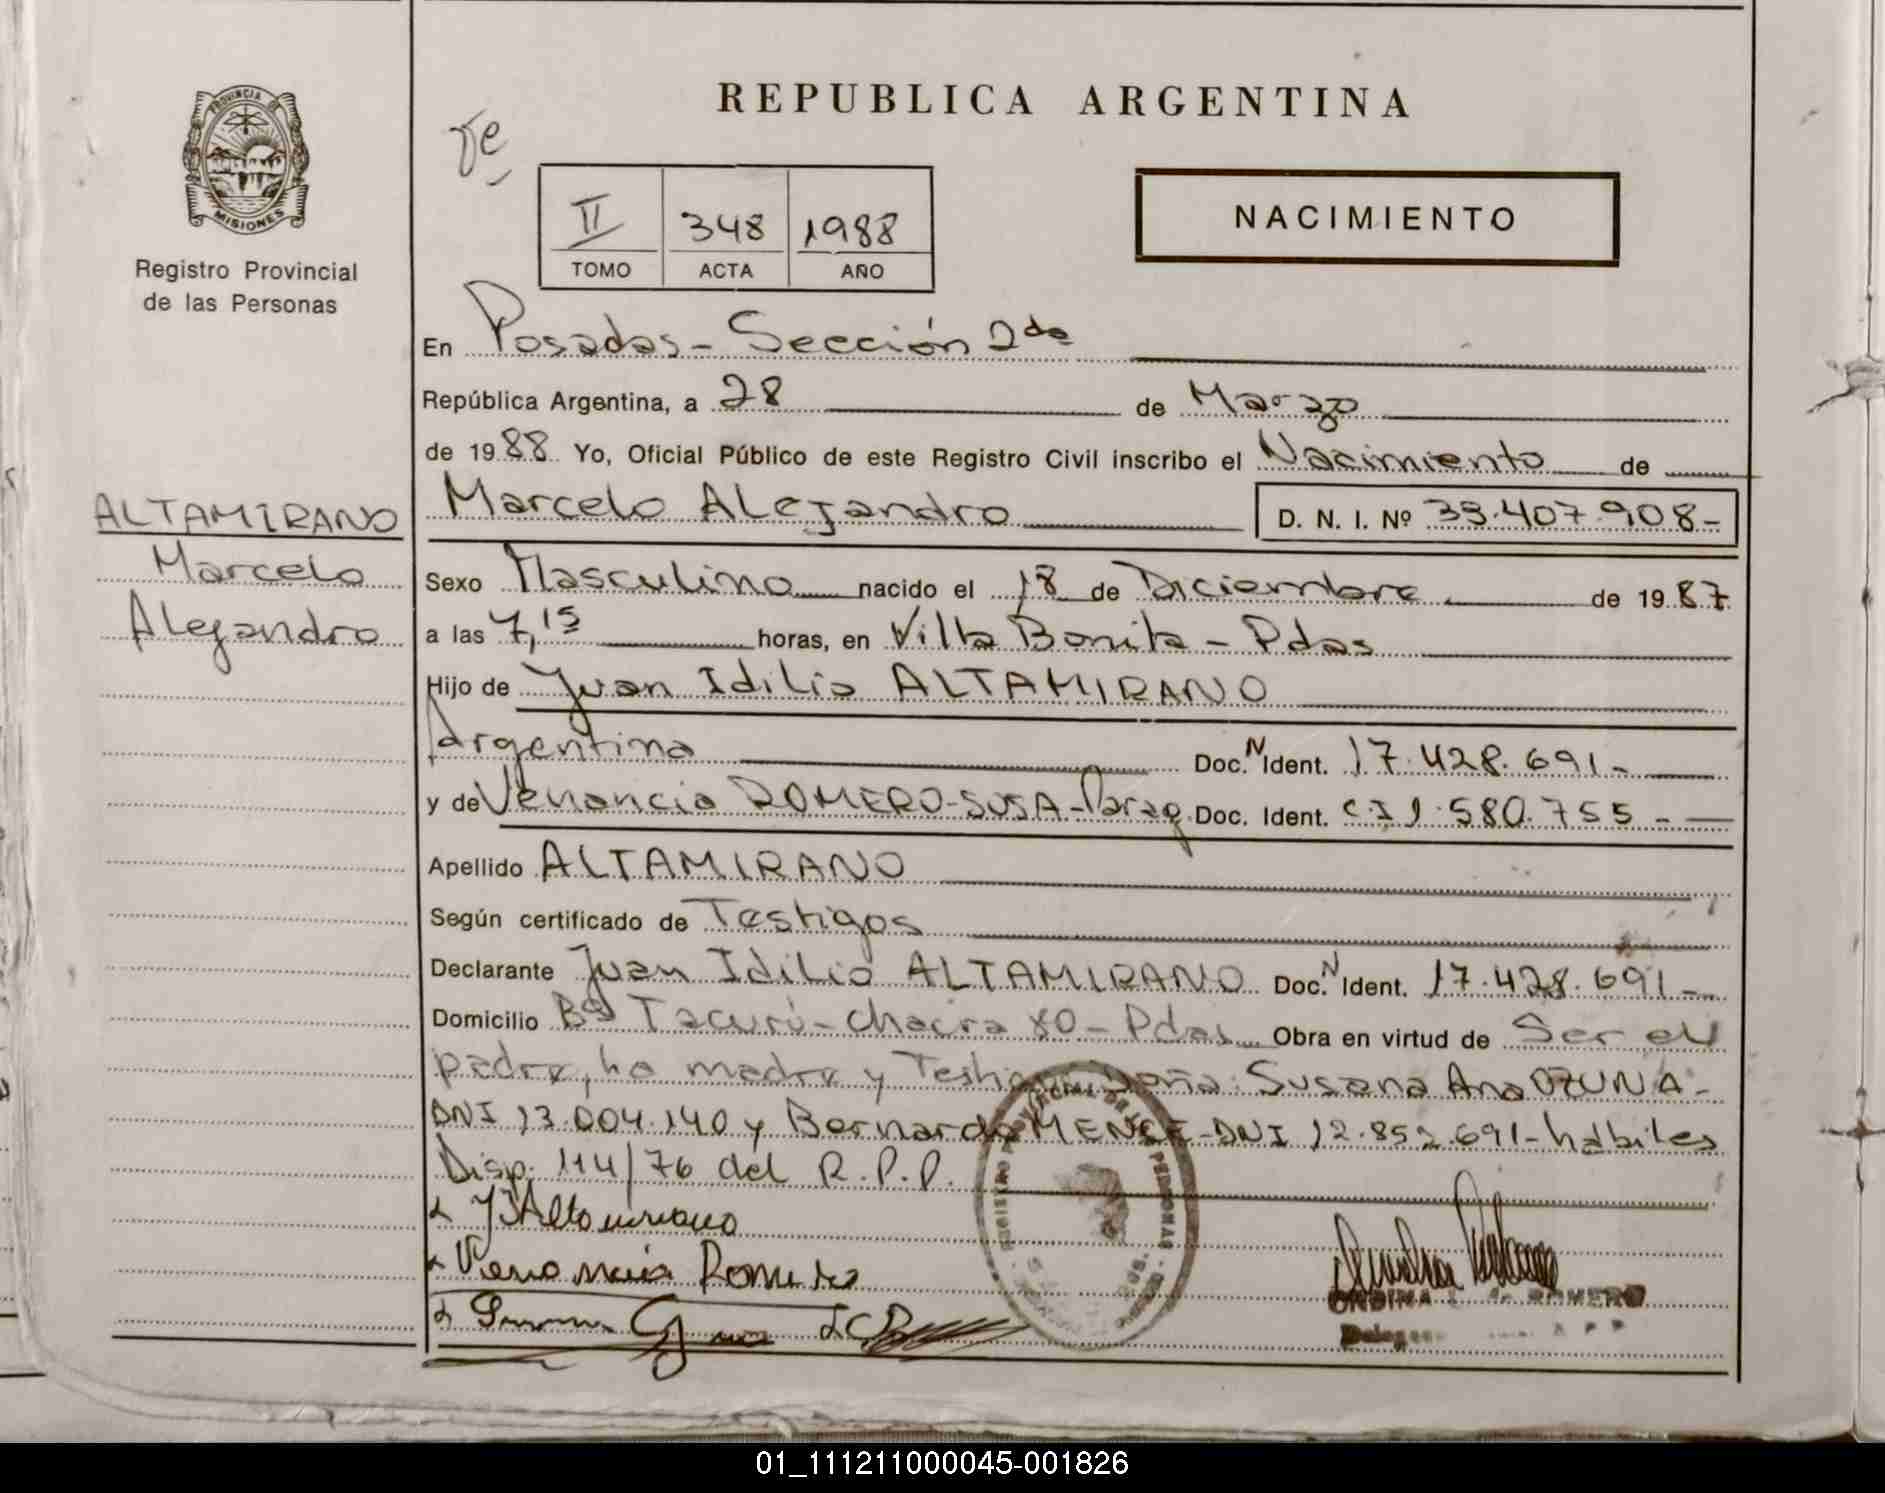 PROVINCIA DE
MISIONES
Registro Provincial
de las Personas
ALTAMIRANO
Marcelo
Alejandro
REPUBLICA ARGENTINA
II 348 1988
TOMO ACTA AÑO
NACIMIENTO
En Posadas - Sección 2da
República Argentina, a 28 de Marzo
de 1988 Yo, Oficial Público de este Registro Civil inscribo el Nacimiento de
Marcelo Alejandro D. N. I. Nº 33.407.908-
Sexo Masculino nacido el 18 de Diciembre de 1987
a las 7,15 horas, en Villa Bonita - Pdas
Hijo de Juan Idilio ALTAMIRANO
Argentina Doc. N Ident. 17.428.691-
y de Venancia ROMERO-SUSA-Parag. Doc. Ident. CI 1.580.755-
Apellido ALTAMIRANO
Según certificado de Testigos
Declarante Juan Idilio ALTAMIRANO Doc. N Ident. 17.428.691-
Domicilio Bº Tacurú - chacra 80 - Pdas Obra en virtud de Ser el
padre, la madre y Doña: Susana Ana OZUNA-
DNI 13.004.140 y Bernardo - DNI 12.852.691- hábiles
Disp. 114/76 del R.P.P.
JIAltamirano
Romero
ROMERO
01_111211000045-001826